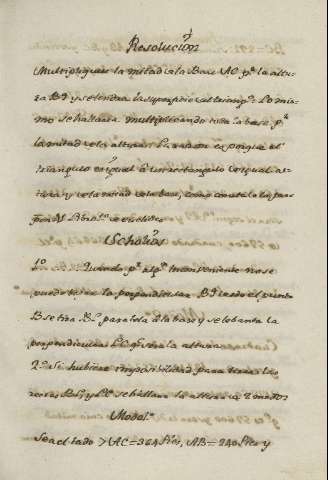 Resolución
Multipliquese la mitad de la Base AC pr. la altu-
ra BD y se tendrá la superficie del triangº. Lo mis-
mo se hallara multiplicando toda la base pr.
la mitad de la altura. La razon es porque el
triangulo es igual á un rectangulo de igual al-
tura y de la mitad de la base, como consta de la
de Euclides
Scholios
1º. Quando pr. algn. inconveniente no se
puede tirar la perpendicular BD desde el punto
B se tira paralela á la base y se lebanta la
perpendicular que será la altura
2º. Si hubiere imposibilidad para tirar las
rectas se hallara la altura de 2 modos
Modo 1º.
Sea el lado AC=364 Pies, AB=240 Pies y